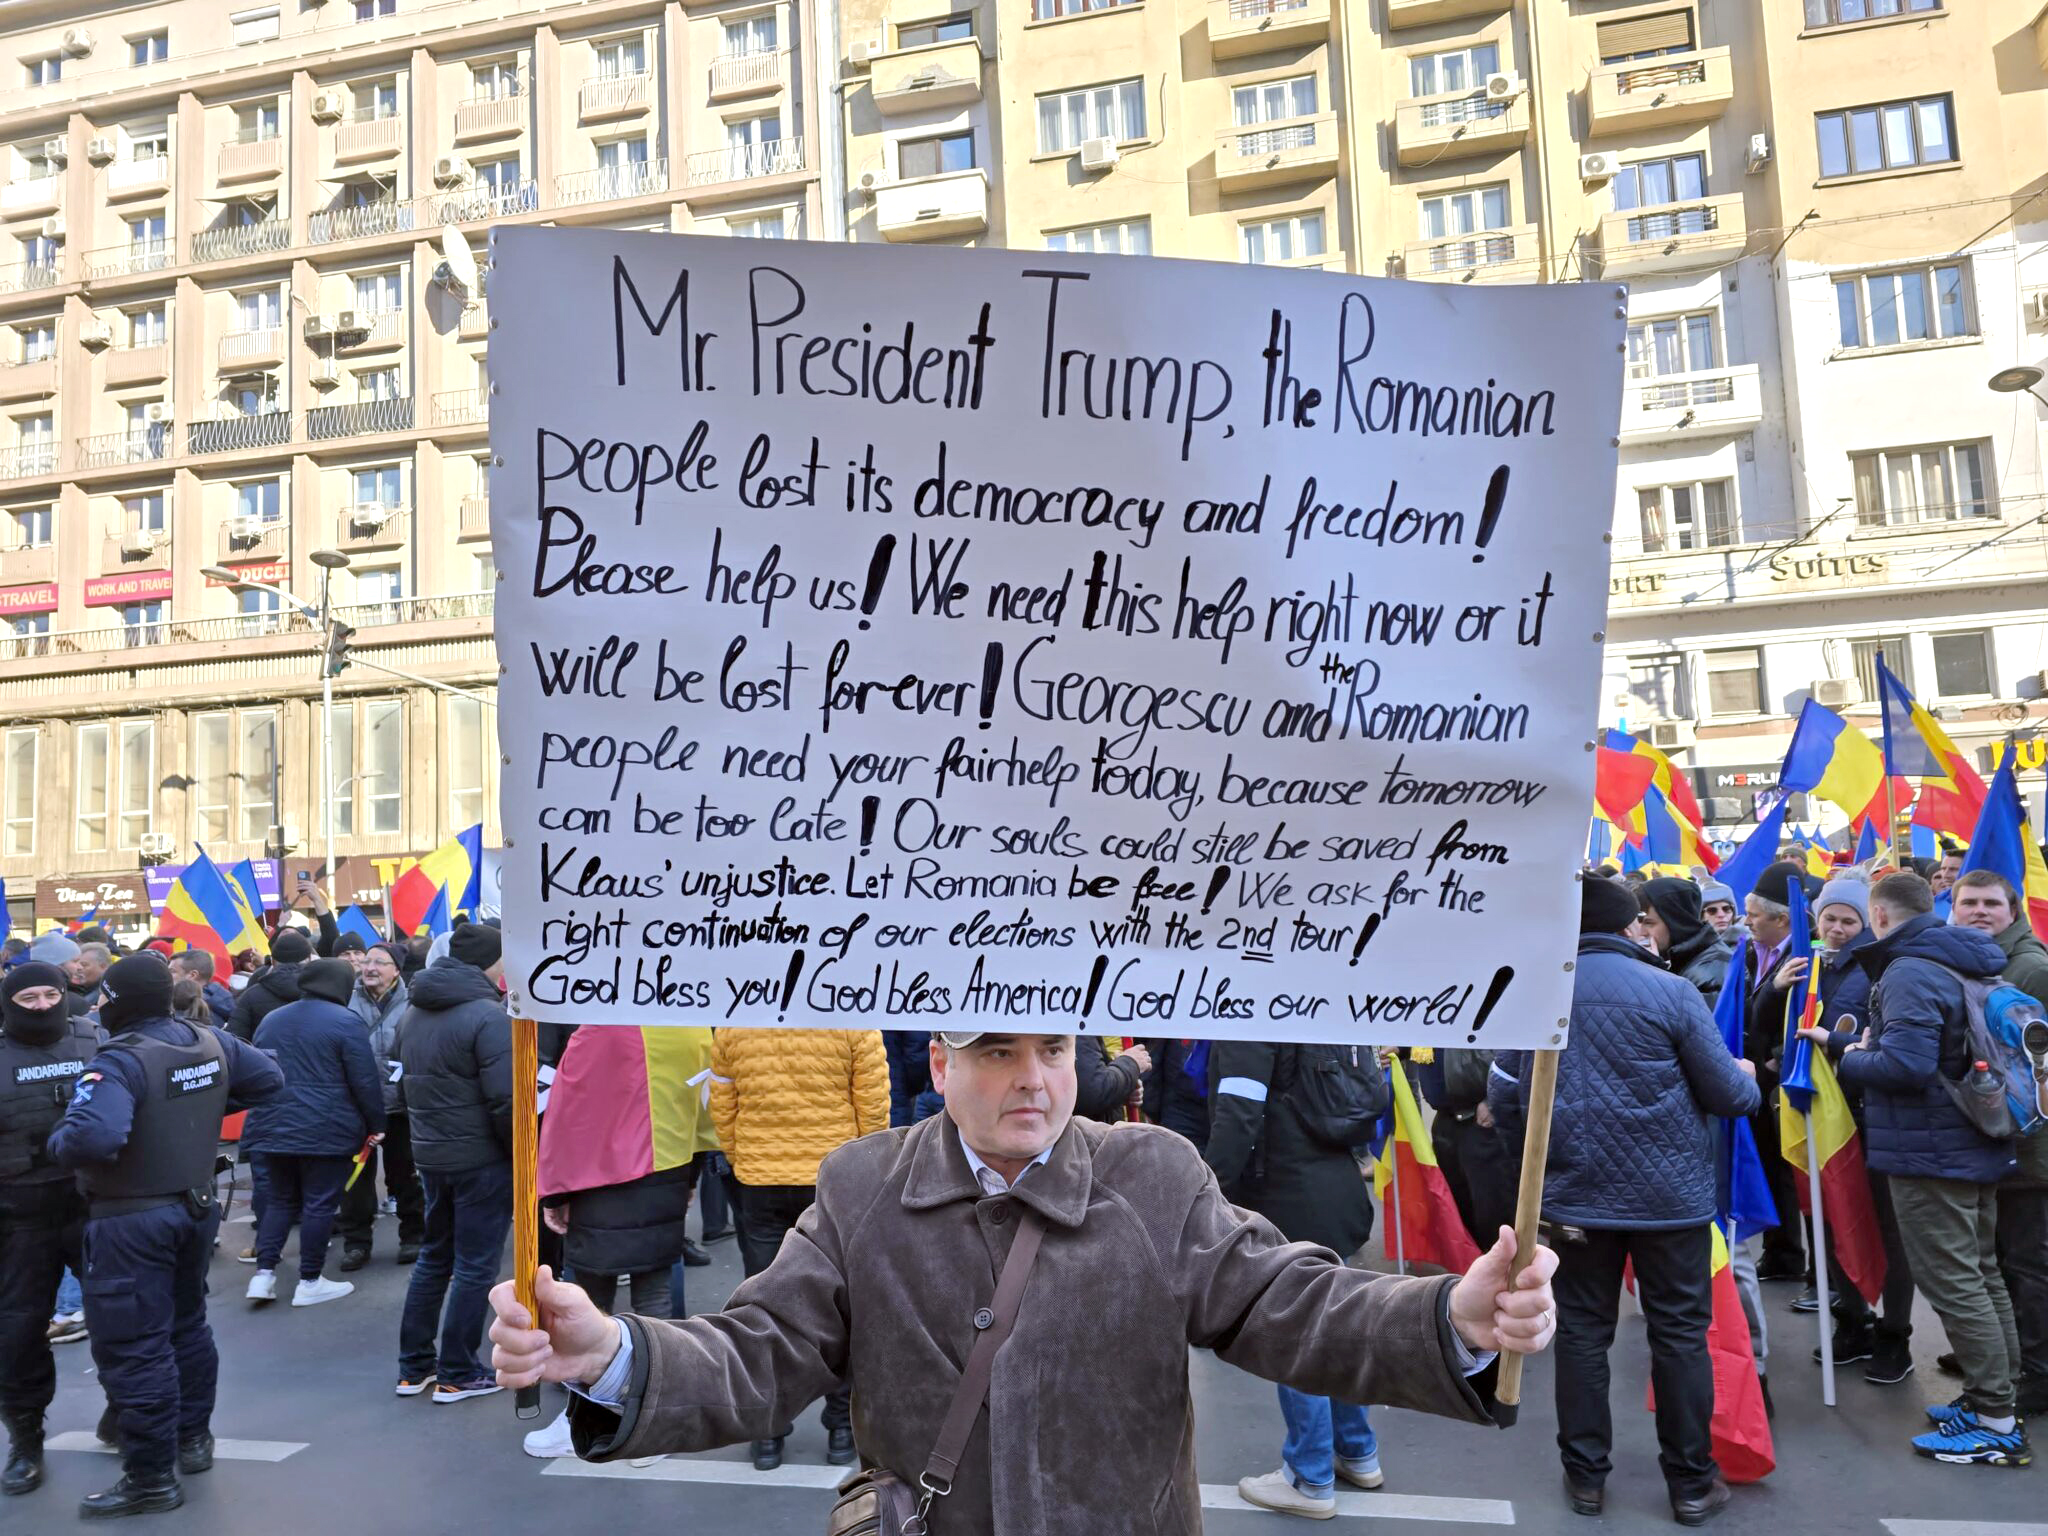 Mr. President Trump, the Romanian
people lost its democracy and freedom!
Please help us! We need this help right now or it
will be lost for-ever! Georgescu and the Romanian
people need your fairhelp today, because tomorrow
can be too late! Our souls could still be saved from
Klaus' unjustice. Let Romania be free! We ask for the
right continuation of our elections with the 2nd tour!
God bless you! God bless America! God bless our world!
STRAVEL
WORK AND TRAVEL
SUITES
JANDARMERIA
JANDARMERIA
D.G.J.M.B.